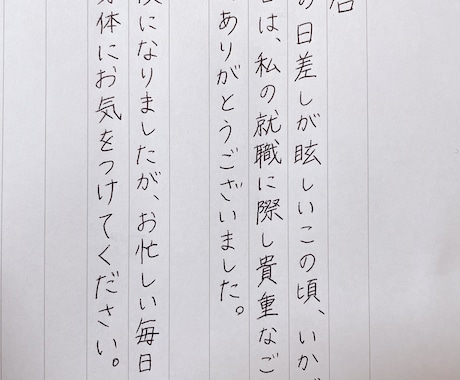 の日差しが眩しいこの頃、いか
は、私の就職に際し貴重なご
ありがとうございました。
になりましたが、お忙しい毎日
体にお気をつけてください。